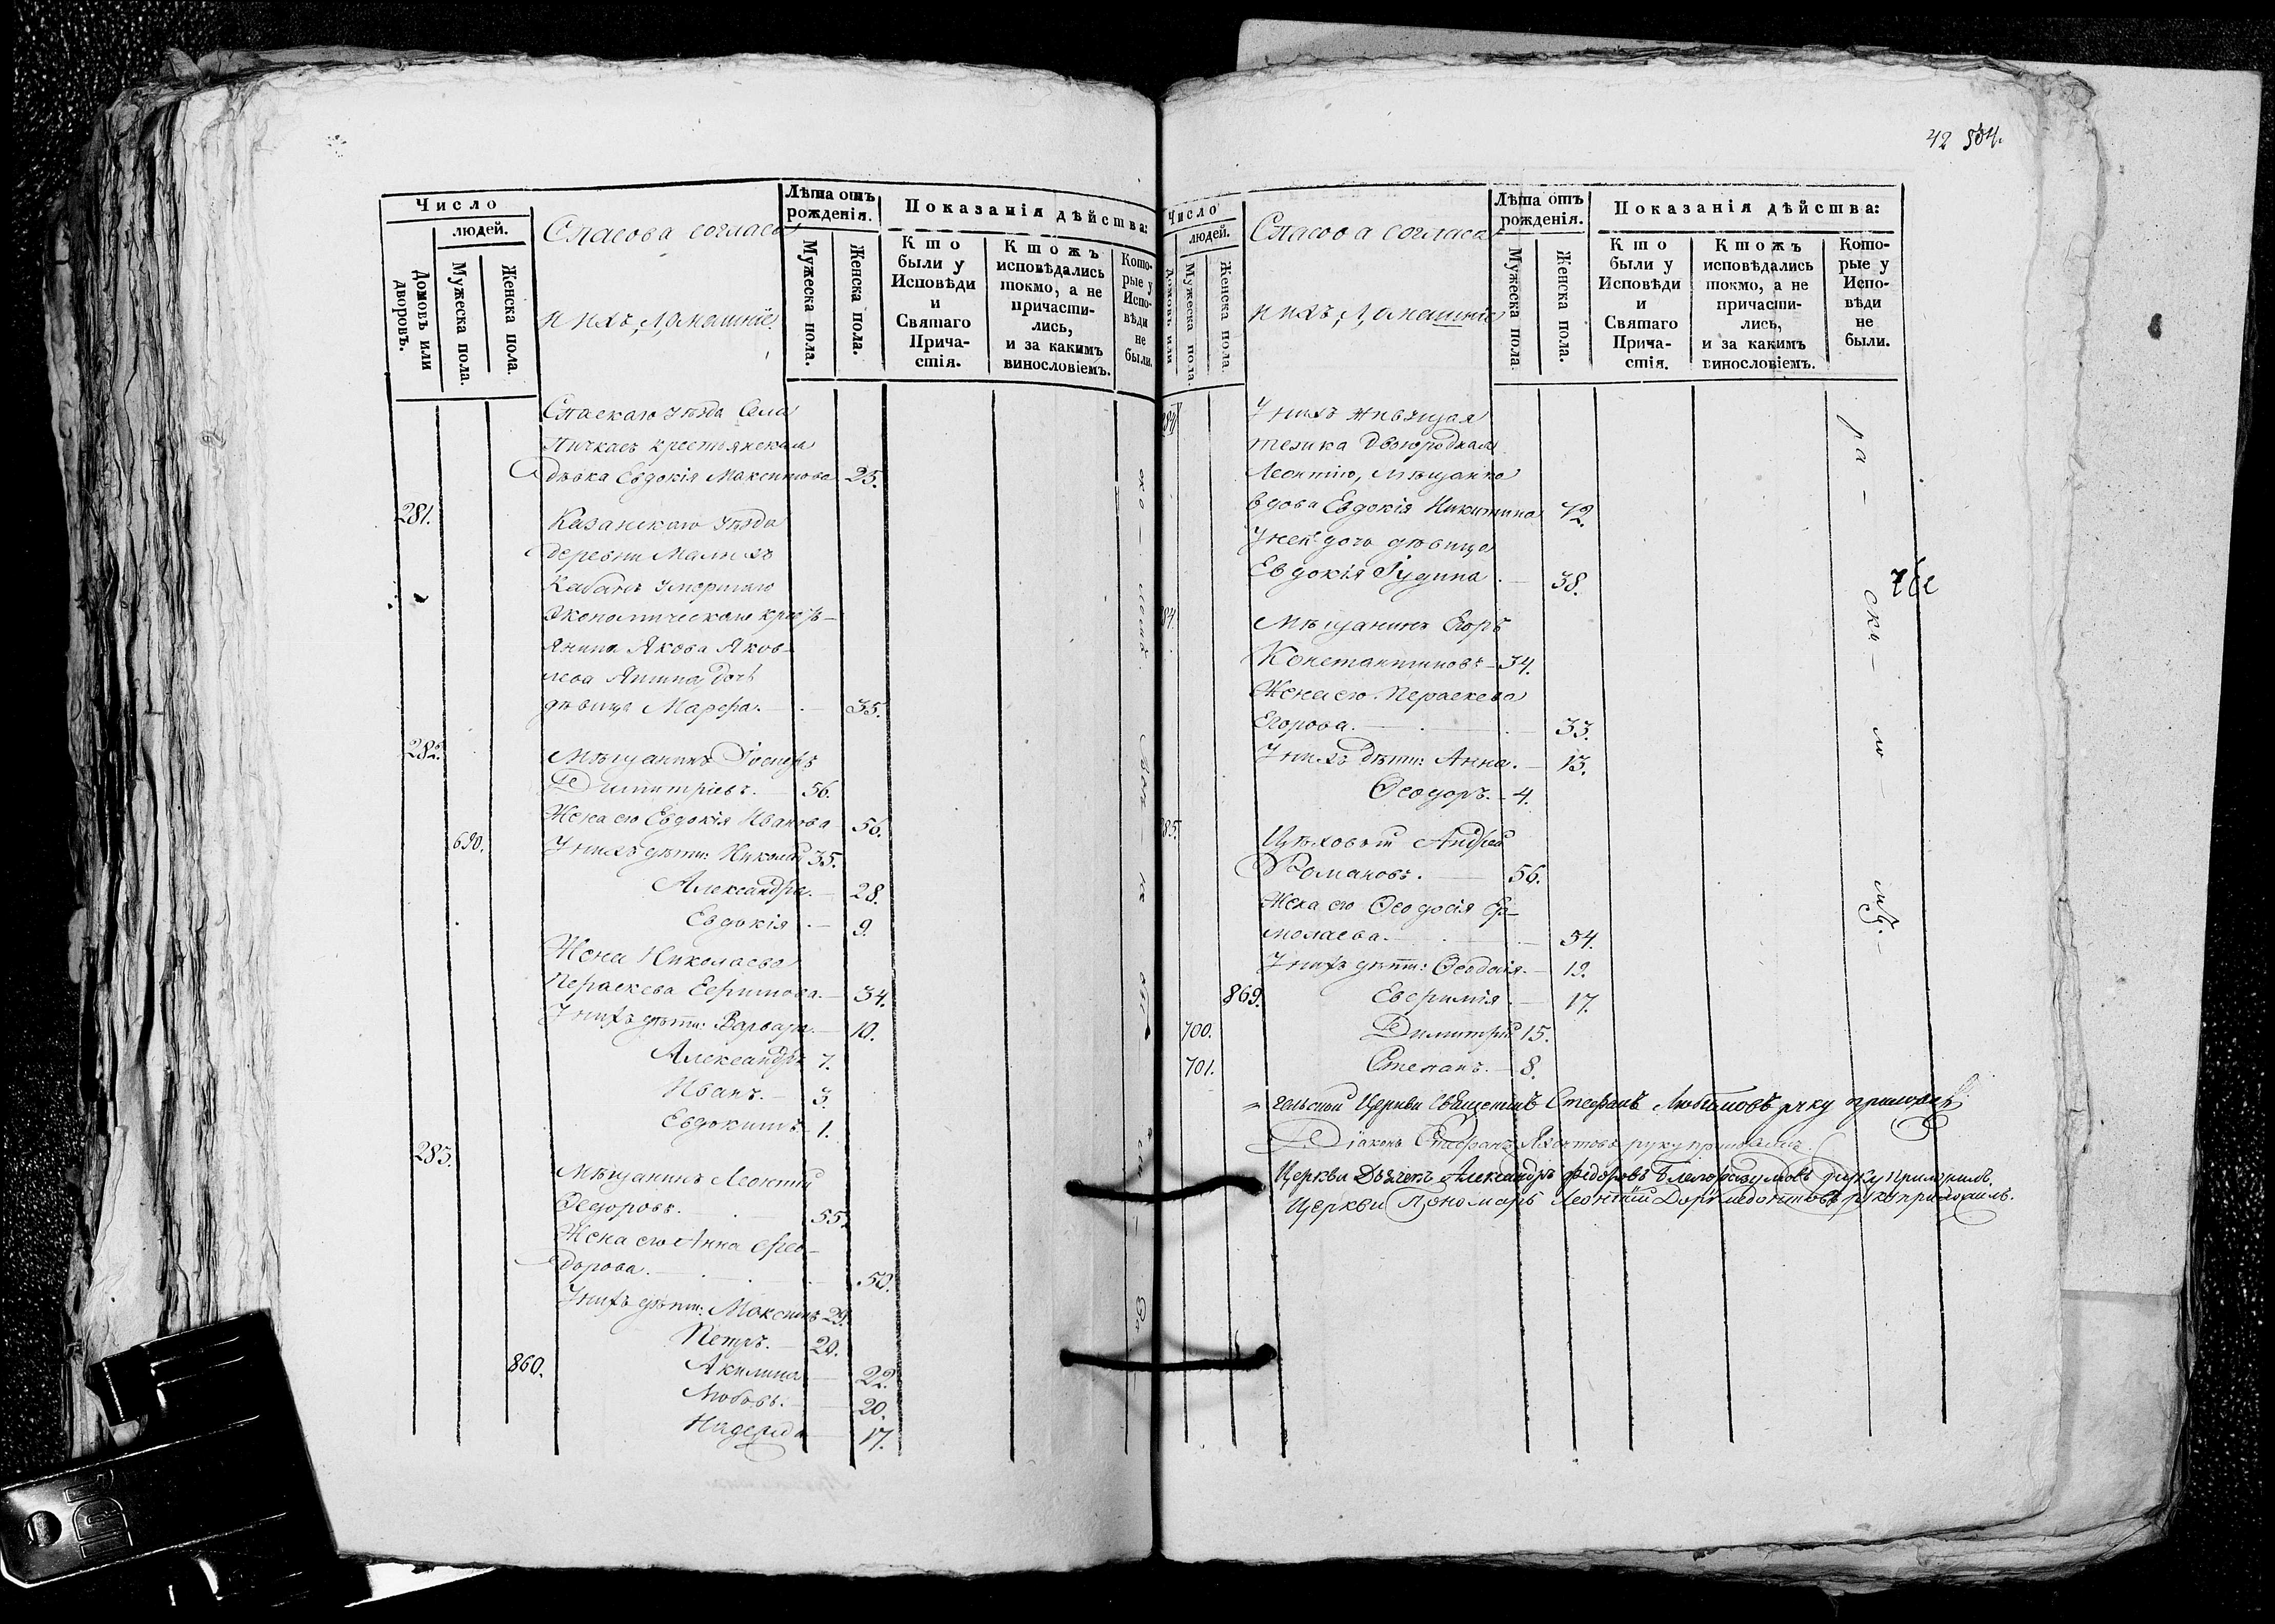 Число
людей.
Домовъ или дворовъ.
Мужеска пола.
Женска пола.
Спасова согласа
и ихъ домашніе.
Лѣта отъ рожденія.
Мужеска пола.
Женска пола.
Показанія дѣйства:
Кто были у Исповѣди и Святаго Причастія.
Ктожъ исповѣдались токмо, а не причастились, и за какимъ винословіемъ.
Которые у Исповѣди не были.
Спаскаго уѣзда села
крестьянская
дѣвка Евдокія Максимова 25.
281. Казанскаго уѣзда
деревни Малыхъ
Кабанъ умершаго
экономическаго крестъ-
янина Якова Яков-
лева дочь
дѣвица Марѳа. 35.
282. Мѣщанинъ
Димитріевъ. 56.
Жена его Евдокія Иванова 56.
690. У нихъ дѣти: Николай 35.
Александра. 28.
Евдокія 9.
Жена Николаева
Пераскева Ефимова. 34.
У нихъ дѣти: Варвара. 10.
Александръ 7.
Иванъ. 3.
Евдокимъ 1.
283. Мѣщанинъ Леонтій
Ѳедоровъ. 55.
Жена его Анна Ѳео-
дорова. 50.
У нихъ дѣти: Максимъ 29.
Петръ. 20.
860. Акилина 22.
Любовь. 20.
Надежда 17.
42 504.
Число
людей.
Домовъ или
Мужеска пола.
Женска пола.
Спасова согласа
и ихъ домашніе
Лѣта отъ рожденія.
Мужеска пола.
Женска пола.
Показанія дѣйства:
Кто были у Исповѣди и Святаго Причастія.
Ктожъ исповѣдались токмо, а не причастились, и за какимъ винословіемъ.
Которые у Исповѣди не были.
У нихъ живущая
тетка двоюродная
Леонтію, мѣщанка
вдова Евдокія Никитина 72.
У нея дочь дѣвица
Евдокія Іудина 38.
84. Мѣщанинъ Егоръ
Константиновъ 34.
Жена его Пераскева
Егорова. 33.
У нихъ дѣти: Анна. 13.
Ѳеодоръ. 4.
85. Цѣховый Андрей
Романовъ. 56.
Жена его Ѳеодосія Ер-
молаева. 54.
У нихъ дѣти: Ѳеодосія. 19.
869. Евфимія 17.
700. Димитрій 15.
701. Степанъ. 8.
Церкви Священникъ Стефанъ Любимовъ руку приложилъ
Діаконъ Стефанъ руку приложилъ
Церкви Дьячекъ Александръ Федоровъ Благоразумовъ руку приложилъ.
Церкви Пономарь Леонтій Доримедонтовъ руку приложилъ.